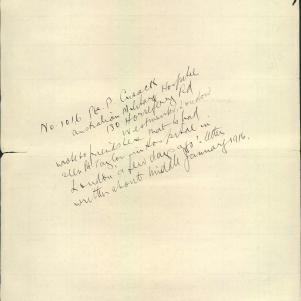 No. 1016 Pte P. Cusack
Australian Military Hospital
130 Horseferry Rd
Westminster London
wrote to friends here that he had
seen Pte Taylor in Hospital in
London a few days ago. Letter
written about middle January 1916.